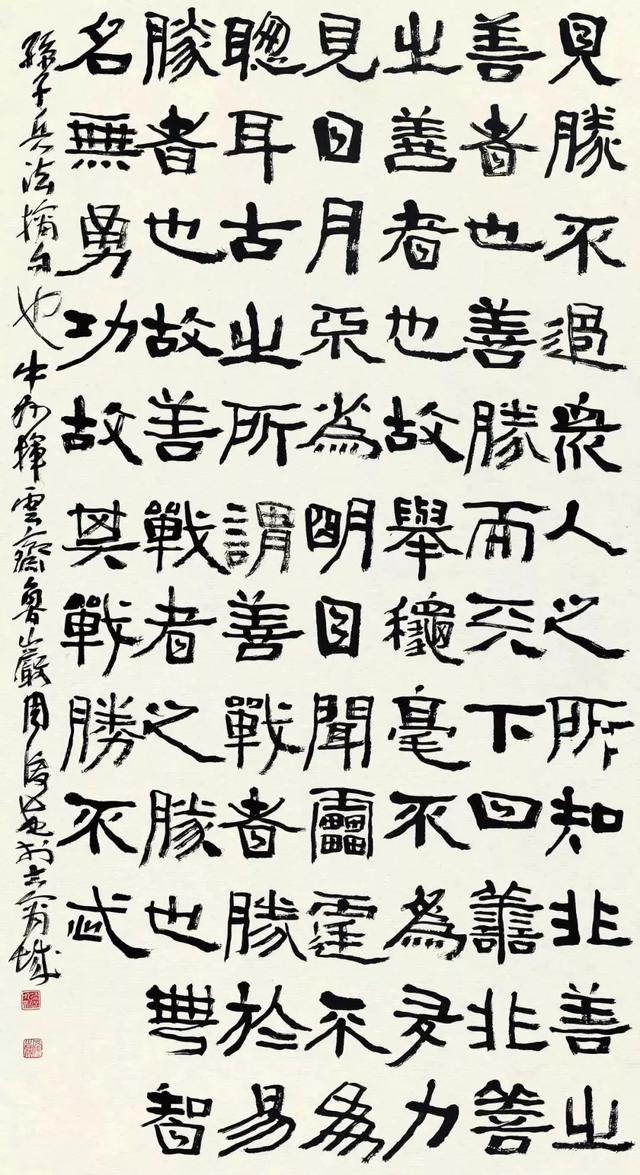 見勝不過衆人之所知非善之
善者也善勝而天下曰譱非善
之善者也故舉穐毫不為多力
見日月不為明目聞靁霆不為
聰耳古之所謂善戰者勝於易
勝者也故善戰者之勝也無智
名無勇功故其戰勝不忒
孫子兵法摘句也 揮雲齋魯山嚴周